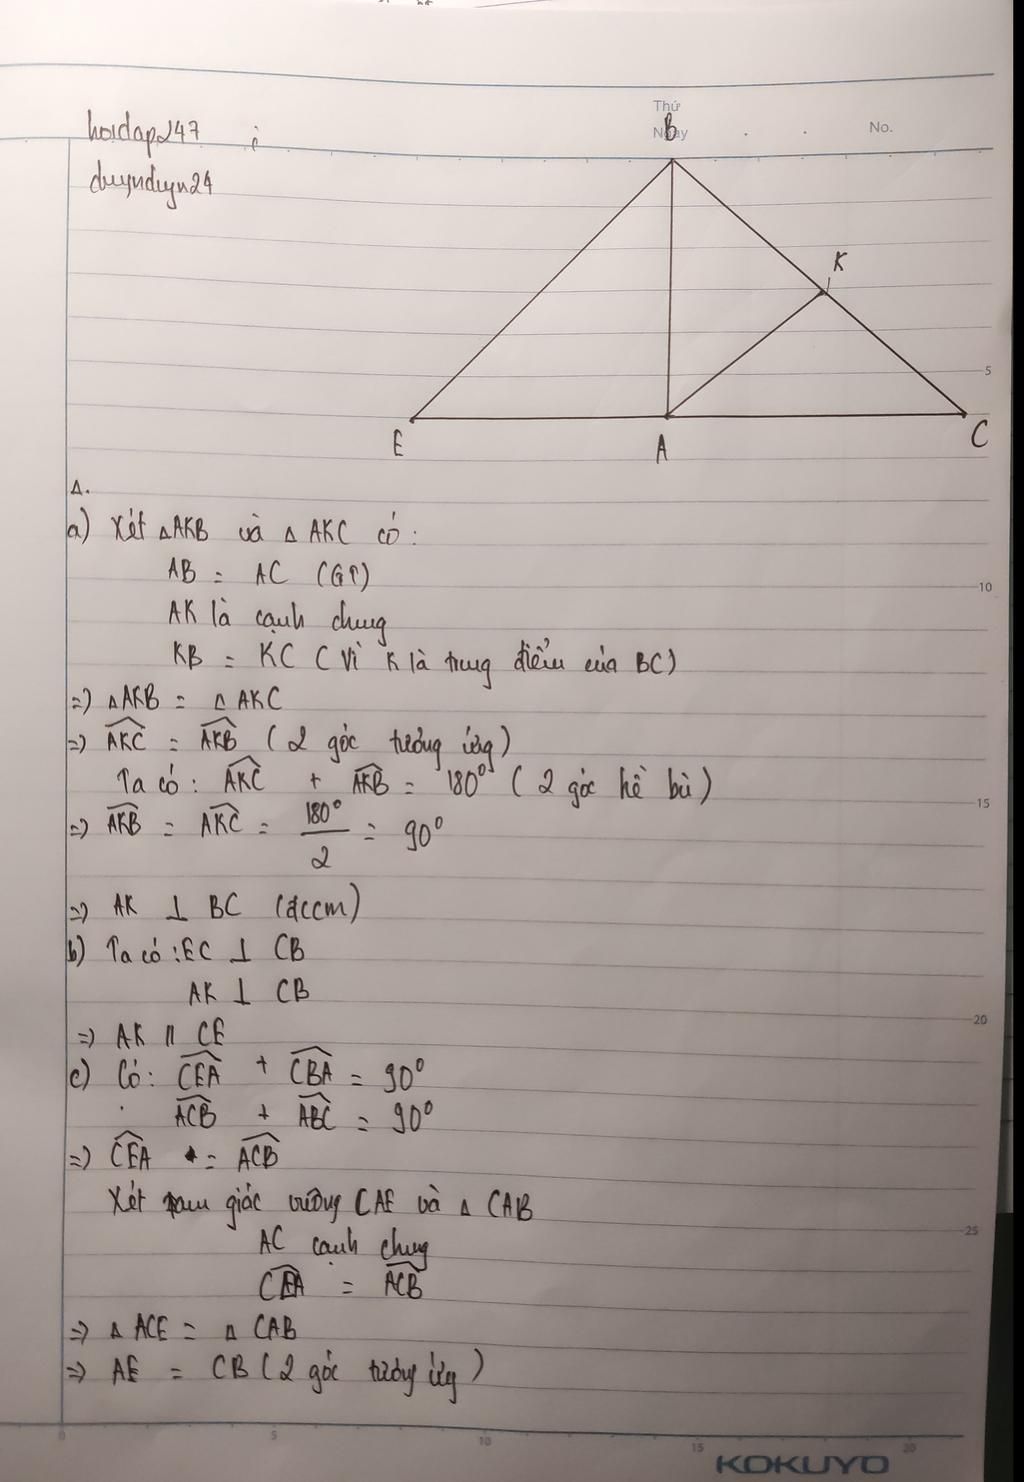 Thứ
Ngày
No.
hoidap247
duynduyn24
B
K
E
A
C
5
1.
a) Xét △AKB và △ AKC có :
AB = AC (GT)
AK là cạnh chung
KB = KC ( Vì K là trung điểm của BC)
=> △AKB = △ AKC
=> AKC = AKB ( 2 góc tương ứng)
Ta có : AKC + AKB = 180° ( 2 góc kề bù )
=> AKB = AKC = 180°/2 = 90°
=> AK ⊥ BC (đccm)
b) Ta có : EC ⊥ CB
AK ⊥ CB
=> AK // CE
c) Có : CEA + CBA = 90°
ACB + ABC = 90°
=> CEA = ACB
Xét tam giác vuông CAE và △ CAB
AC cạnh chung
CEA = ACB
=> △ ACE = △ CAB
=> AE = CB ( 2 góc tương ứng )
10
15
20
25
0 5 10 15 20
KOKUYO